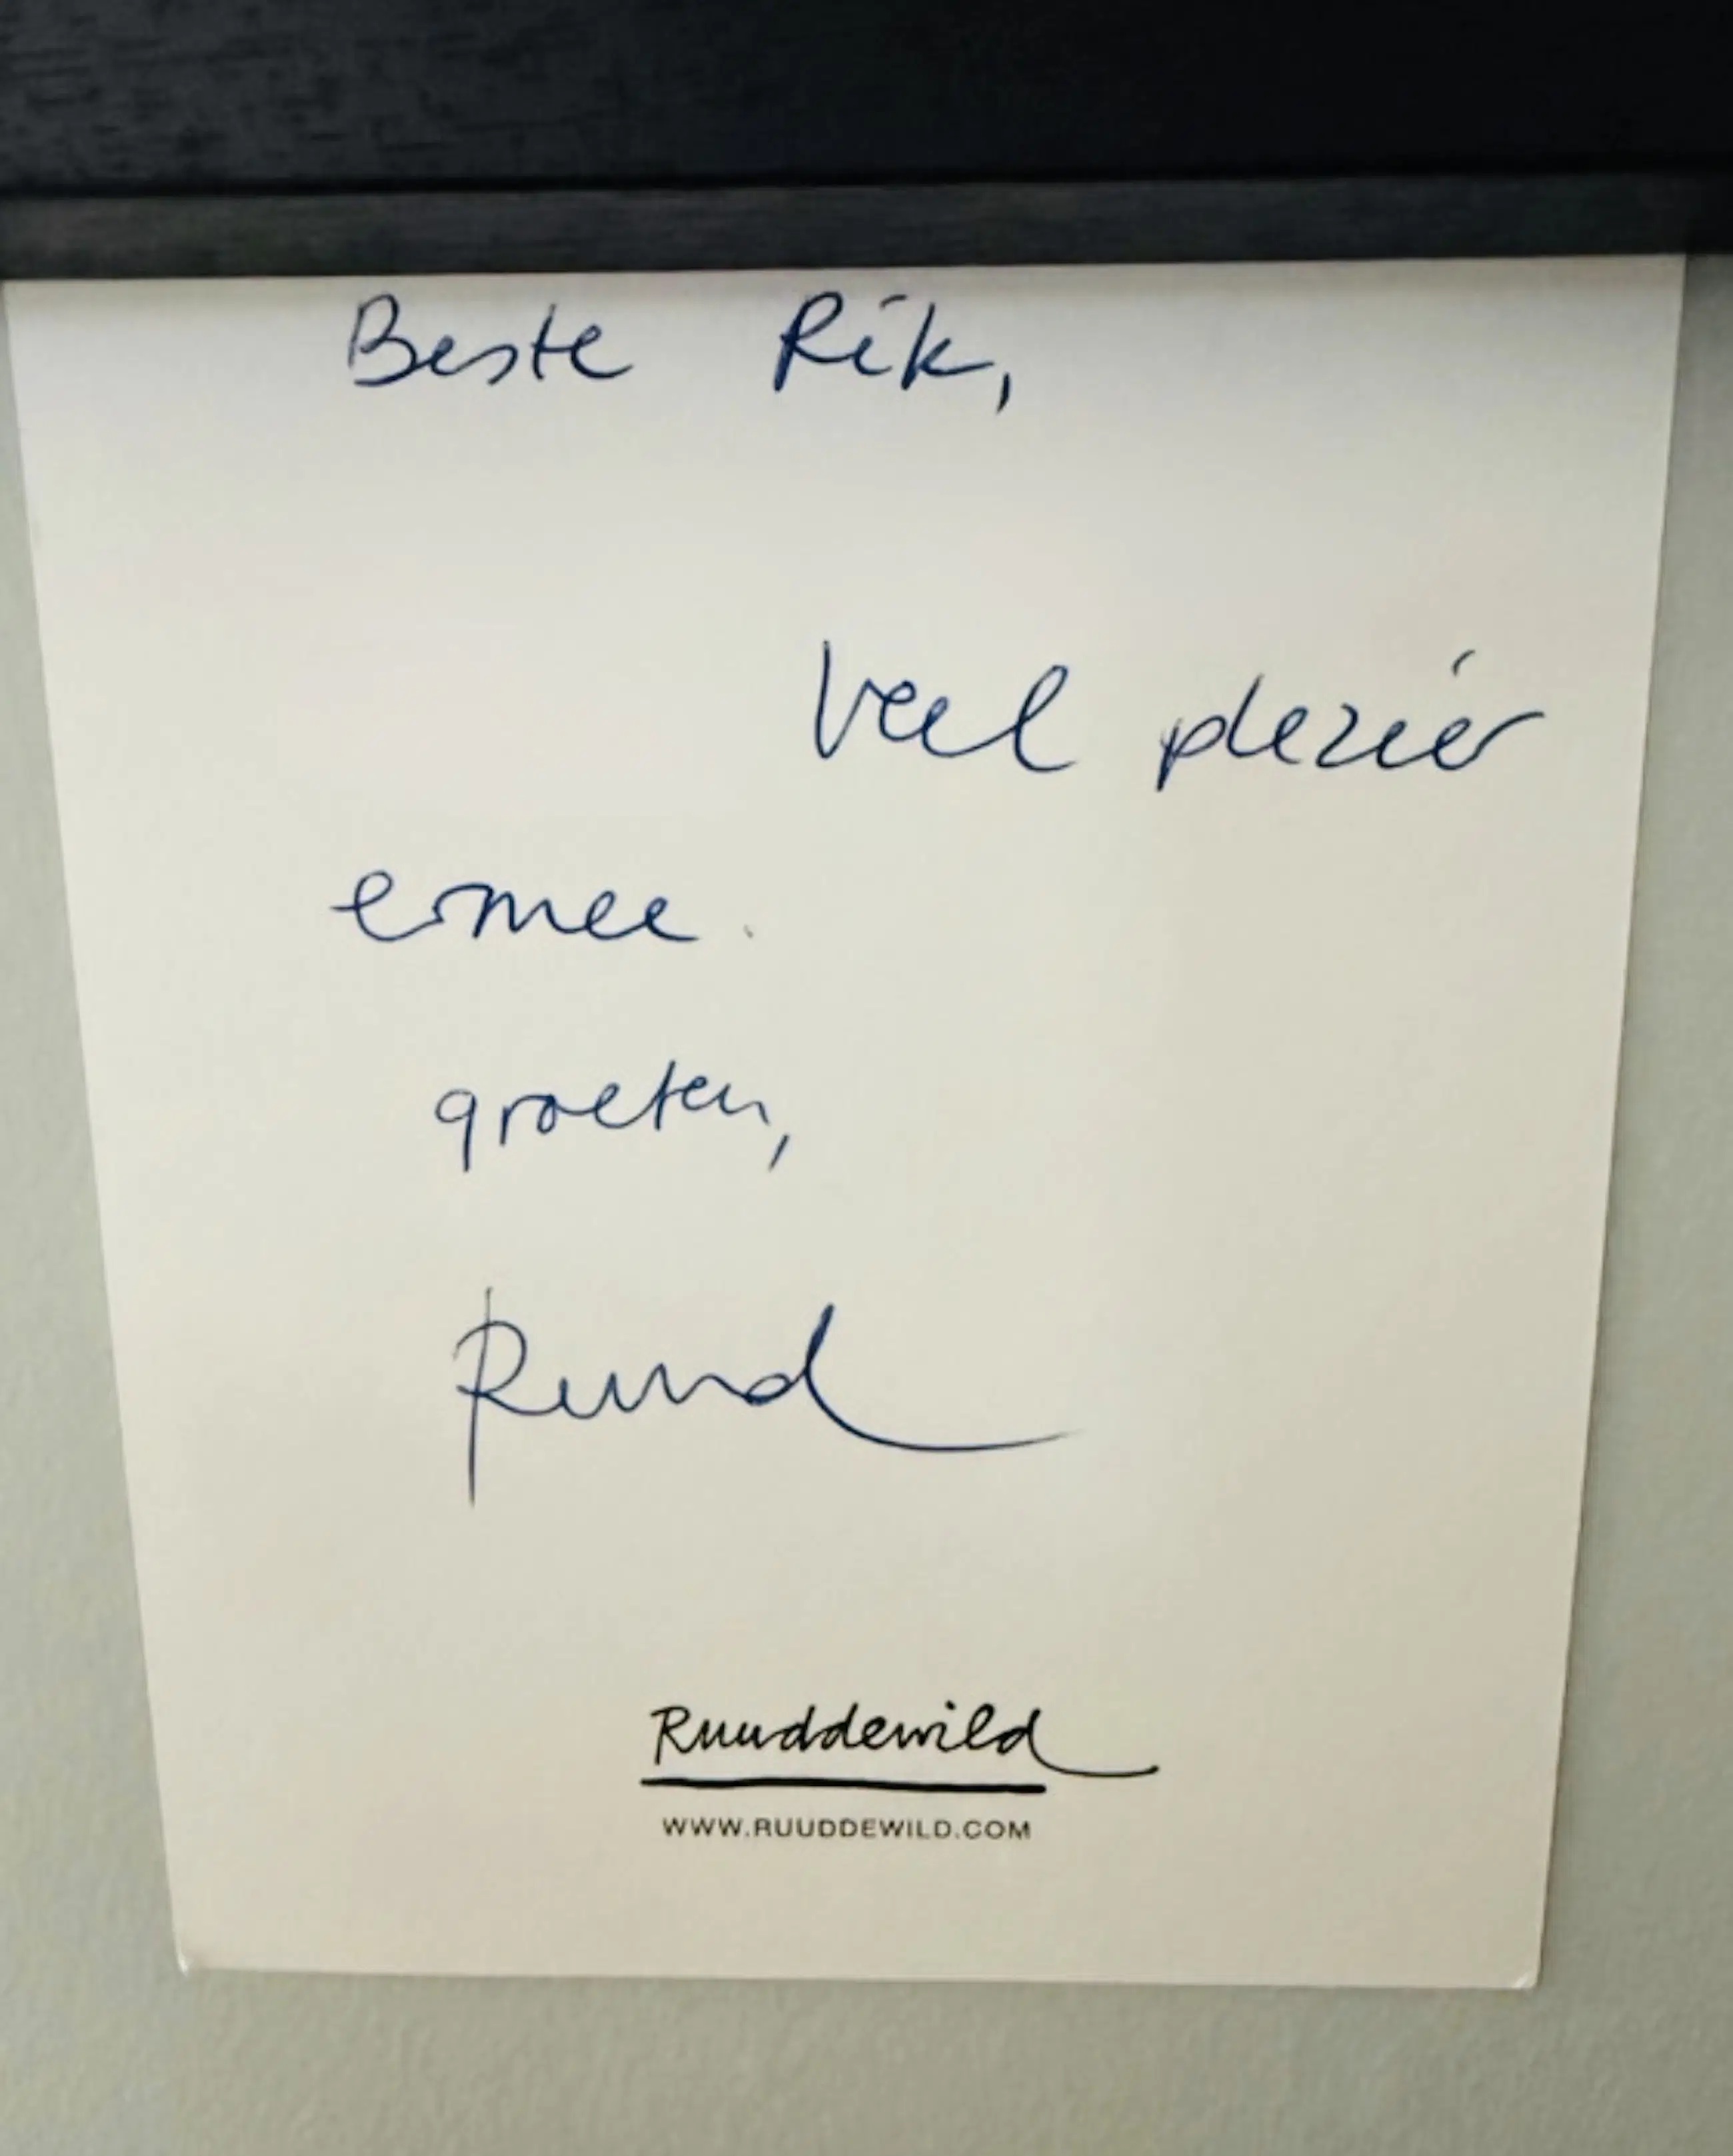 Beste Rik,
Veel plezier
ermee.
groeten,
Ruud
Ruuddewild
WWW.RUUDDEWILD.COM